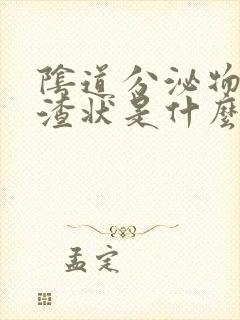 陰道分泌物
渣狀是什麼
孟定